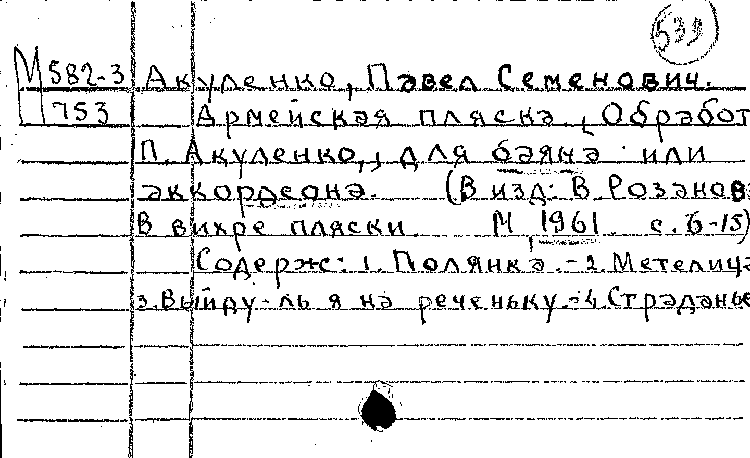 539
М 582-3 Акуленко, Павел Семенович.
753 Армейская пляска, Обработ
П. Акуленко, для баяна или
аккордеона. (В изд: В. Розанов
В вихре пляски. М 1961 с. 6-15)
Содерж: 1. Полянка. - 2. Метелица
3. Выйду-ль я на реченьку. - 4. Страданье